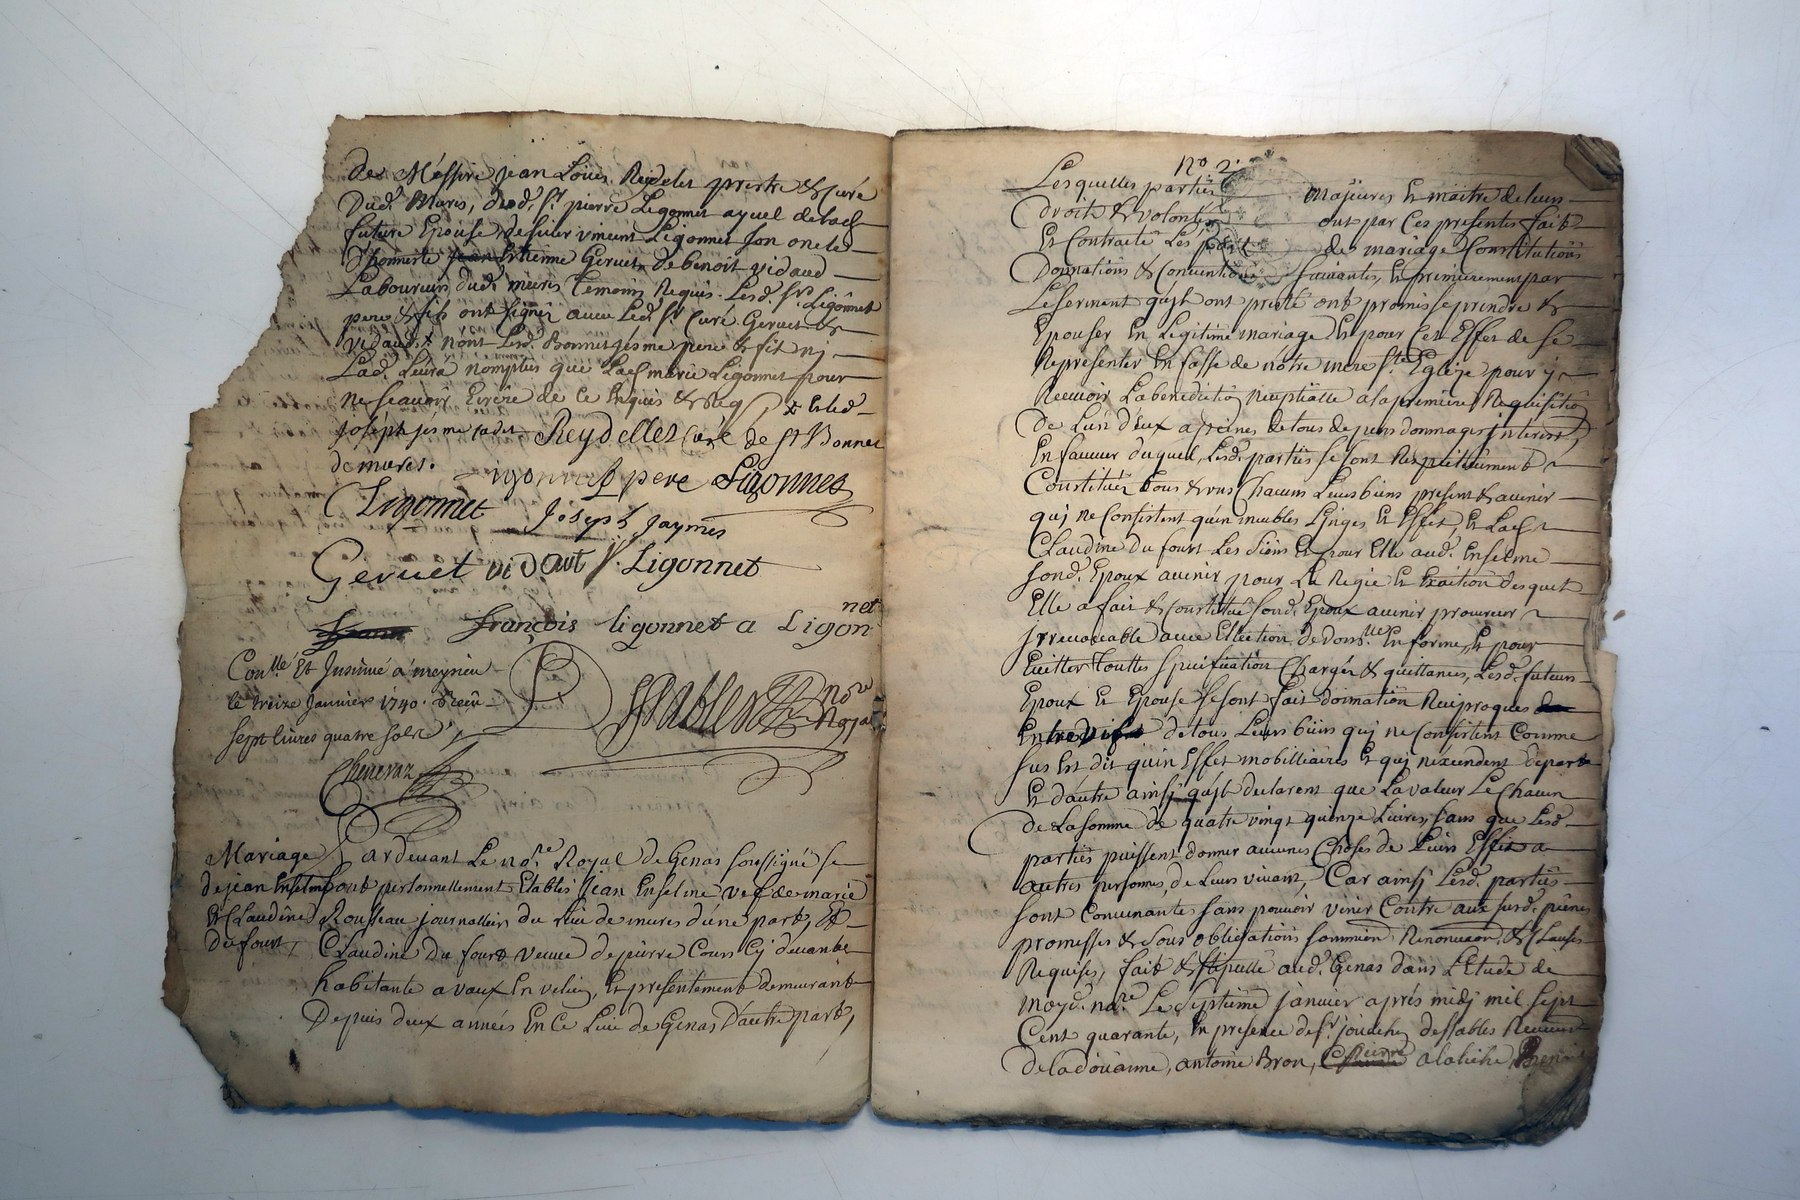 De Messire jean Louis Reydelet prestre & curé
Dud. Mures, dud. Sr. pierre Ligonnet ayuel de lad
future Epouse de sieur vincent Ligonnet son oncle
D'honneste Estienne Geruet, de benoit vidaud
Laboureurs dud. mures Temoins Requis. Lesd. Srs. Ligonnet
pere & fils ont signés avec led. Sr. Curé Geruet &
vidaud. x non Lesd. Bonnet jesme pere & fils nj
Lad. Leura nomplus que Lad. marie Ligonnet pour
ne scavoir Ecrire de ce Enquis & Req x Et led
joseph jesme cadet Reydellet Curé de St Bonnet
de mures.
pere Ligonnet
Ligonnet joseph jaymes
Geruet vidaut V. Ligonnet
françois ligonnet a Ligon
net
Conllé Et Insinué a meyzieu
le treize Janvier 1740. Receu
sept livres quatre sols
Chenevaz
Dessables no.re Royal
Mariage Pardevant Le no.re Royal de Genas soussigné se
de jean Enselme sont personnellement Etablis Jean Enselme vef de marie
& Claudine Rousseau journallier du Lieu de mures d'une part, Et
du fourt, Claudine du fourt veuve de pierre Cours Cy devant
habitante a vaux En velin, Et presentement demeurant
Depuis deux années En Ce Lieu de Genas D'autre part,
No. 2.
Lesquelles parties majeures Et maitre de leurs
droits & volontés ont par Ces presentes fait
Et Contracté Les de mariage Constitutions
Donnations & Conventions suivantes, Et premierement par
Le serment qu'ils ont presté ont promis se prendre &
Epouser En Legitime mariage Et pour Cet Effet de se
Representer En fasse de notre mere Ste. Eglize pour y
Recevoir La benediction Nuptialle a la premiere Requisition
De L'un d'eux a peines de tous depens dommages interest,
En faveur duquel, Lesd. parties se sont Respectivement
Constitués tous & uns Chacuns Leurs biens present & avenir
qui ne Consistent qu'en meubles Linges Et Effets, Et Lad.
Claudine du fourt Les siens Et pour Elle aud. Enselme
sond. Epoux avenir pour La Regie Et Exaction desquels
Elle a fait & Constitué sond. Epoux avenir procureur
jrrevocable avec Ellection de domlle En forme, Et pour
Eviter touttes spécification Charges & quittances, Lesd. futeurs
Epoux Et Epouse se sont fait donnation Reciproques
Entrevifs de tous Leurs biens qui ne Consistent Comme
sus Est dit qu'en Effet mobilliaires Et qui n'excendent de part
Et d'autre ainsj qu'ils declarent que La valeur Le Chacun
de La somme de quatre vingt quinze Livres, sans que Lesd.
parties puissent donner aucunes Choses de Leurs Effets a
autres personnes, de Leurs vivant, Car ainsj Lesd. parties
sont Convenantes sans pouvoir venir Contre aux susd. peines
promesses & sous obligations Renonciaon, & Clauses
Requises, fait & stipullé aud. Genas dans L'Etude de
moyd. no.re Le septieme janvier aprés midj mil sept
Cent quarante, En presence de Sr. dessables Receveur
de la doüanne, antoine Bron, pierre